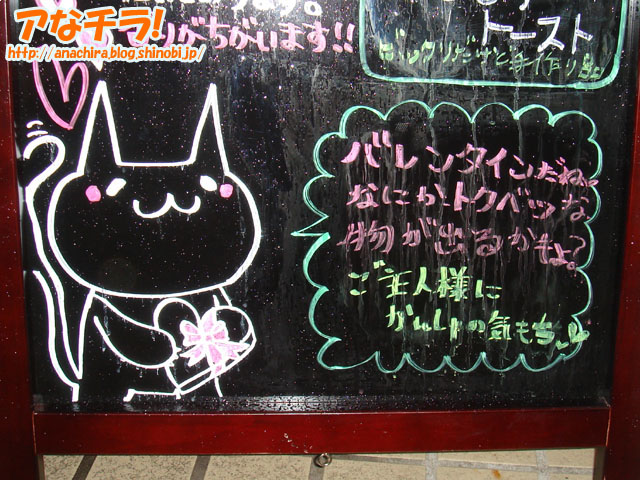 アなチラ!
http://anachira.blog.shinobi.jp/
りがちがいます!!
トースト
バレンタインだね
なにかトクベツな
物が出るかもよ?
ご主人様に
かんしゃの気もち